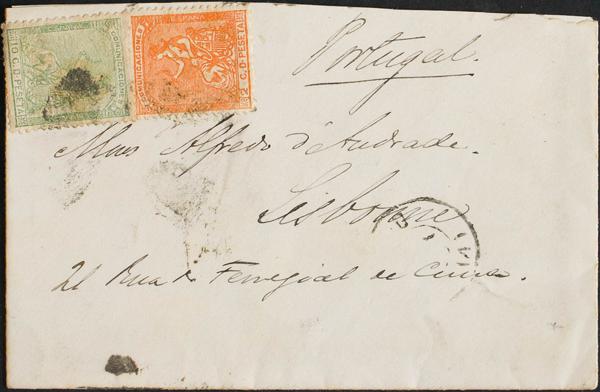 COMUNICACIONES
10 C. D. PESETA
ESPAÑA
COMUNICACIONES
2 C. D. PESETA
Portugal.
Alfredo d'Andrade.
Lisbonne
21 Rua de Ferregial de Cima.